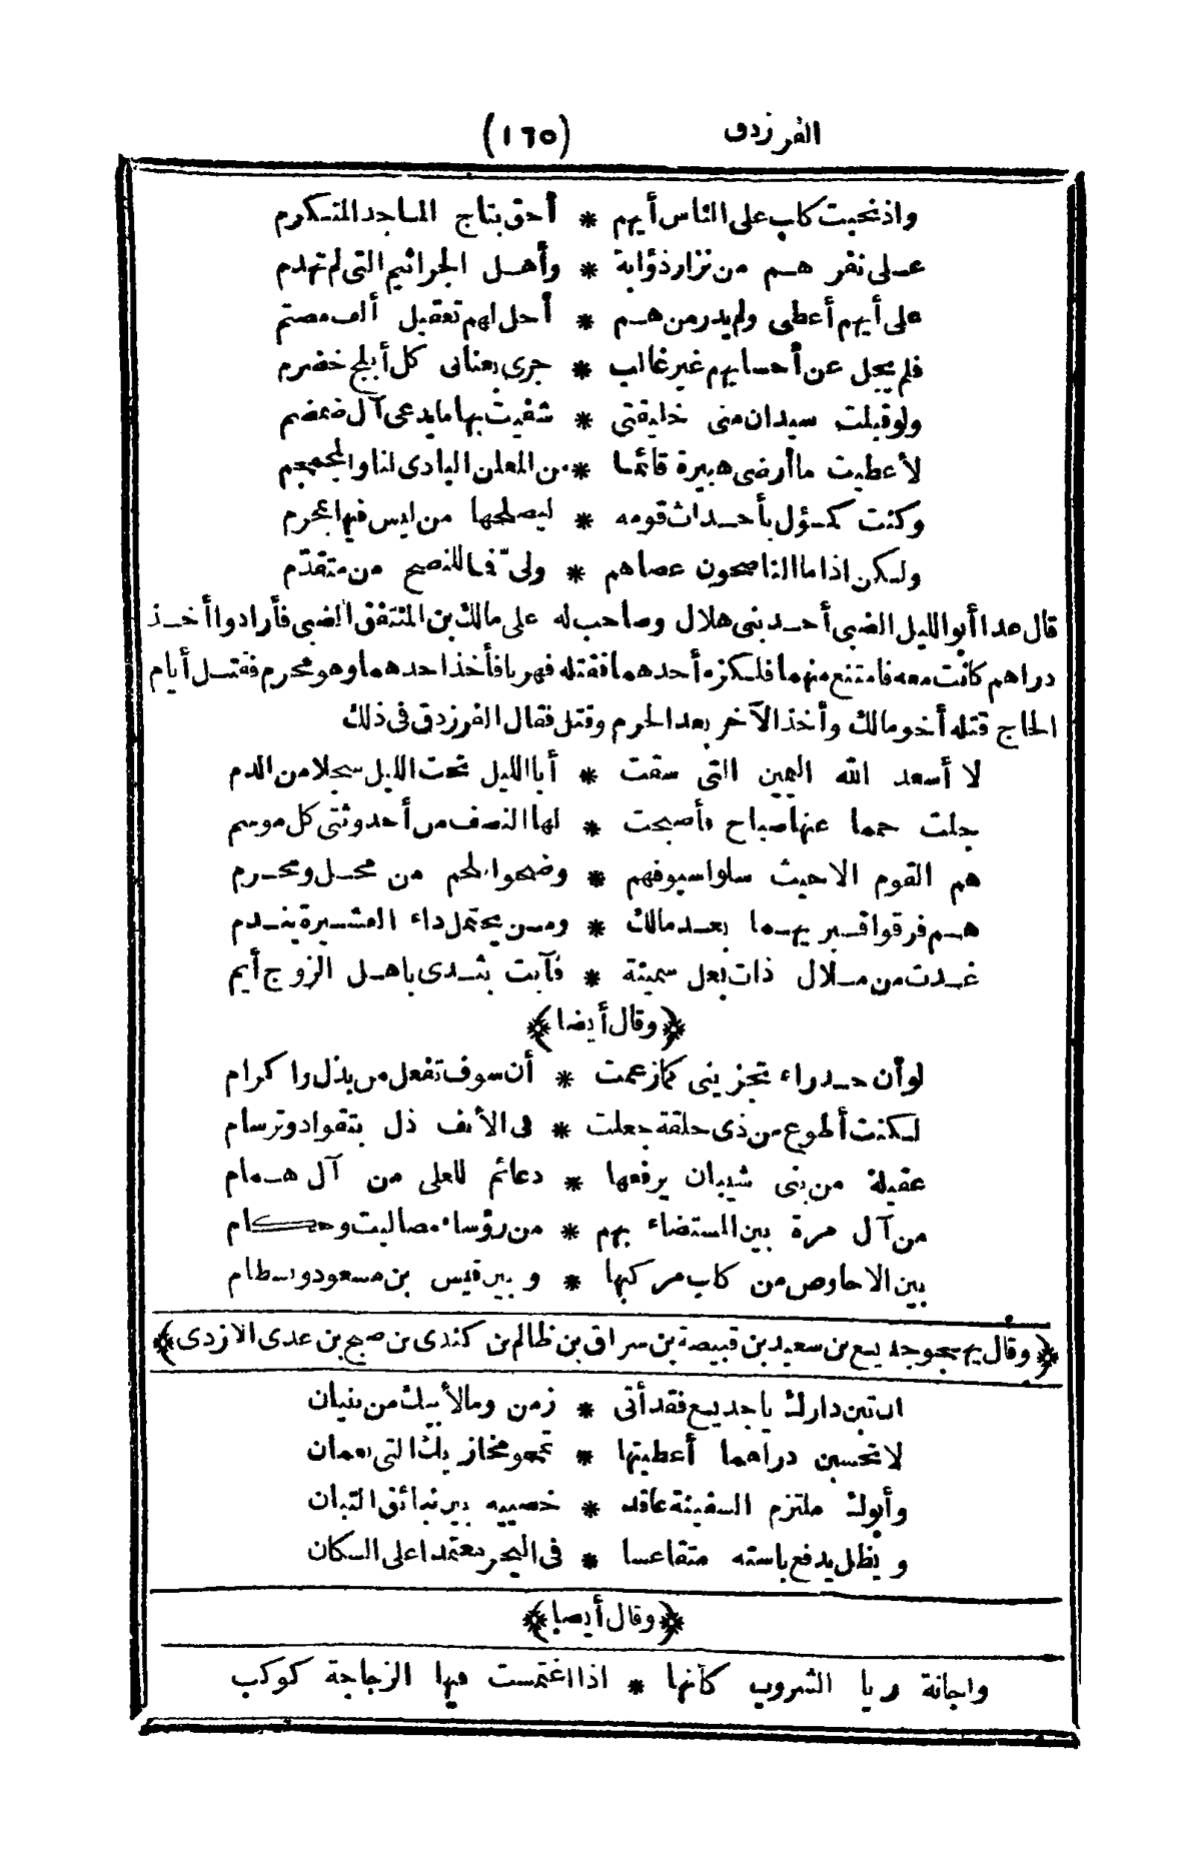 الفرزدق (١٦٥)
واذ نحبت كلب على الناس أيهم * أحق بتاج الماجد المتكرم
على نفر هم من نزار ذؤابة * وأهل الجراثيم التى لم تهدم
على أيهم أعطى ولم يدر من هم * أحل لهم تعقيل ألف مصتم
فلم يجل عن أحسابهم غير غالب * جرى بعنانى كل أبلج خضرم
ولو قبلت سيدان منى خليقتى * شفيت بها ما يدعى آل ضمضم
لأعطيت ما أرضى هبيرة قائما * من المعلن البادى لنا والمجمجم
وكنت كمسؤل بأحداث قومه * ليصلحها من ليس فيها بمجرم
ولكن اذا ما الناصحون عصاهم * ولىّ فما للنصح من متقدّم
قال عدا أبو الليل الضبى أحد بنى هلال وصاحب له على مالك بن المنتفق الضبى فأرادوا أخذ
دراهم كانت معه فامتنع منهما فلكزه أحدهما فقتله فهربا فأخذ احدهما وهو محرم فقتل أيام
الحاج قتله أخو مالك وأخذ الآخر بعد الحرم وقتل فقال الفرزدق فى ذلك
لا أسعد الله اليمين التى سقت * أبا الليل تحت الليل سجلا من الدم
جلت حمما عنها صباح فأصبحت * لها النصف من أحدوثتى كل موسم
هم القوم الا حيث سلوا سيوفهم * وضحوا بلحم من محل ومحرم
هم فرقوا قبريهما بعد مالك * ومن يحتمل داء العشيرة يندم
غدت من هلال ذات بعل سمينة * فآبت بثدى باهل الزوج أيم
﴿وقال أيضا﴾
لو أن حدراء تجزينى كما زعمت * أن سوف تفعل من بذل واكرام
لكنت أطوع من ذى حلقة جعلت * فى الأنف ذل بتقواد وترسام
عقيلة من بنى شيبان يرفعها * دعائم للعلى من آل همام
من آل مرة بين المستضاء بهم * من رؤساء مصاليت وحكام
بين الاحاوص من كلب مركبها * وبين قيس بن مسعود وبسطام
﴿وقال يهجو جديع بن سعيد بن قبيصة بن سراق بن ظالم بن كندى بن صبح بن عدى الازدى﴾
ان تبن دارك يا جديع فقد أتى * زمن وما لأبيك من بنيان
لا تحسبن دراهما أعطيتها * تمحو مخازيك التى بعمان
وأبوك ملتزم السفينة عاقد * خصييه بين بنائق التبان
ويظل يدفع باسته متقاعسا * فى البحر معتمدا على السكان
﴿وقال أيضا﴾
واجانة ريا الشروب كأنها * اذا اغتمست فيها الزجاجة كوكب